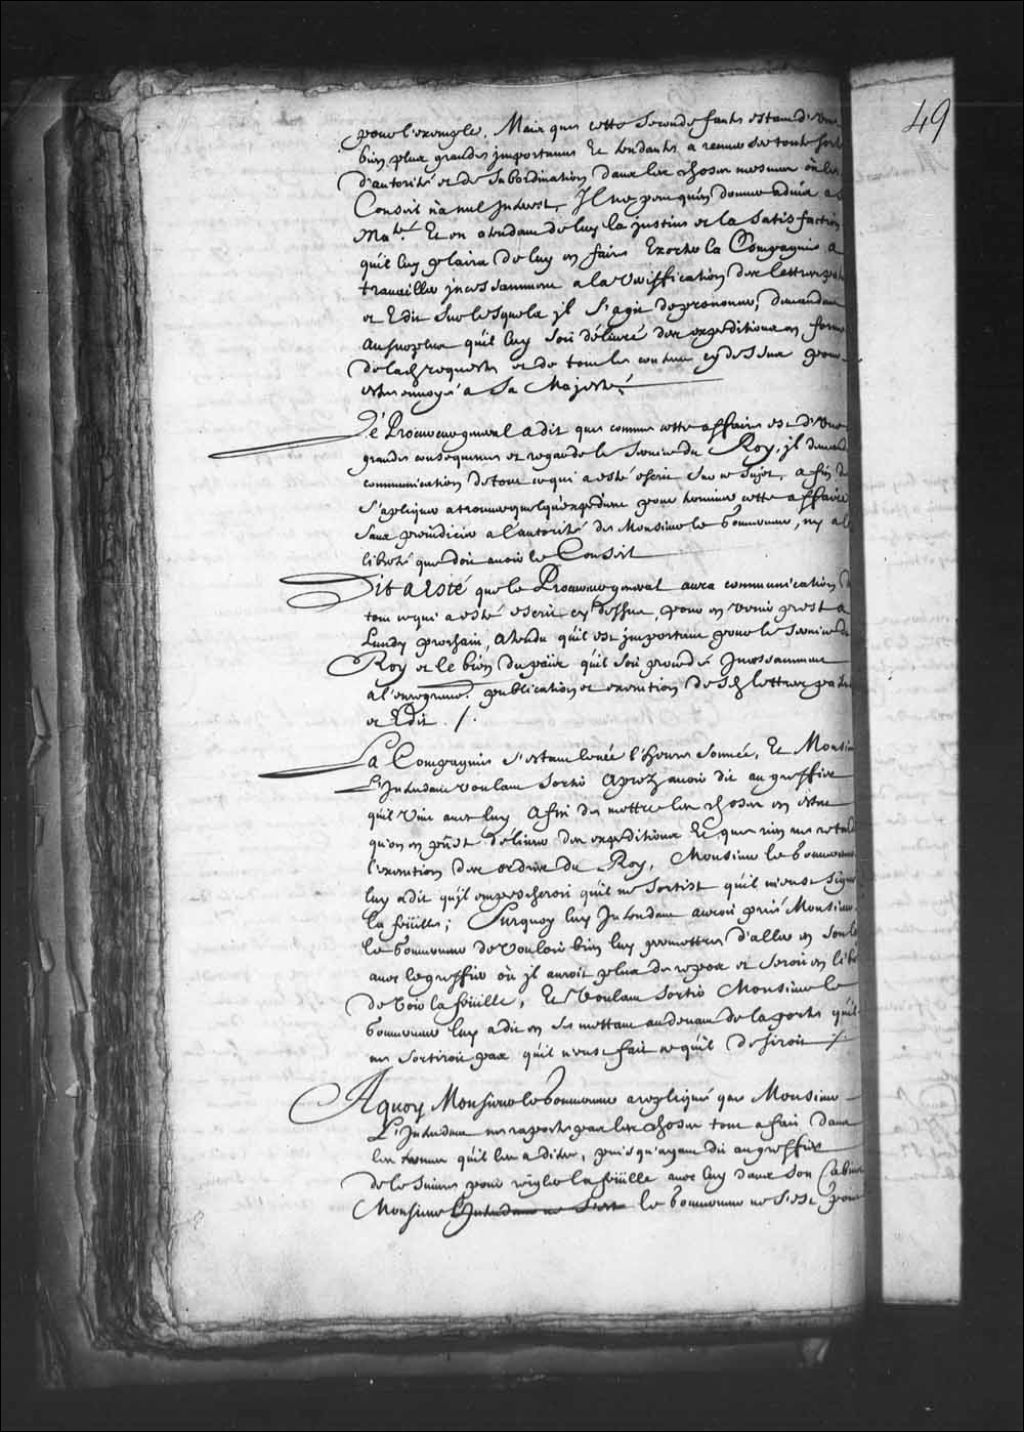 49
pour l'exemple. Mais que cette seconde faute estant d'une
bien plus grande jmportance Et tendante a renuerser toute sorte
d'autorité et de subordination dans les choses mesmes où le
Conseil n'a nul Interest, Il ne peut qu'en donner aduis a sa
Ma.té Et en attendant de luy la justice et la satisfaction
qu'il luy plaira de luy en faire Exorte la Compagnie a
trauailler jncessamment a la veriffication des lettres pat
et Edit sur lesquels jl s'agit de prononcer, demandant
au surplus qu'il luy soit déliuré des expeditions en forme
de lad. requeste et de tout le contenu cy dessus pour
estre enuoyé a Sa Majesté
Le Procureur general a dit que comme cette affaire est d'une
grande consequence et regarde le seruice du Roy, jl demande
communication de tout ce qui a esté escrit sur ce sujet, afin de
s'apliquer a trouuer quelqu'expedient pour terminer cette affaire
sans prejudicier a l'autorité de Monsieur le Gouuerneur, ny a la
liberté que doit auoir le Conseil
Dit a esté que le Procureur general aura communication de
tout ce qui a esté escrit cy dessus, pour en venir prest a
Lundy prochain, Attendu qu'il est jmportant pour le seruice du
Roy et le bien du païs qu'il soit procedé Incessamment
a l'enregistrem.t publication et execution desd. lettres patentes
et Edit ./.
La Compagnie s'estant leuée l'heure sonnée, Et Monsieur
L'Intendant voulant sortir Aprez auoir dit au greffier
qu'il vint auec luy Afin de mettre les choses en estat
qu'on en pust déliurer des expeditions Et que rien ne retardast
l'execution des ordres du Roy, Monsieur le Gouuerneur
luy a dit qu'jl empescheroit qu'il ne sortist qu'il n'eust signé
la feüille; Surquoy luy Intendant auroit prié Monsieur
le Gouuerneur de vouloir bien luy permettre d'aller en son
auec le greffier où jl auroit plus de repos et seroit en liberté
de voir la feüille, Et voulant sortir Monsieur le
Gouuerneur luy a dit en se mettant au deuant de la porte qu'il
ne sortiroit pas qu'il n'eust fait ce qu'il desiroit ./.
A quoy Monsieur le Gouuerneur a repliqué que Monsieur
L'Intendant ne raporte pas les choses tout a fait dans
les termes qu'il les a dites, puis qu'ayant dit au greffier
de le suiure pour regler la feüille auec luy dans son Cabinet
Monsieur l'Intendant ne s'est le Gouuerneur ne s'est point